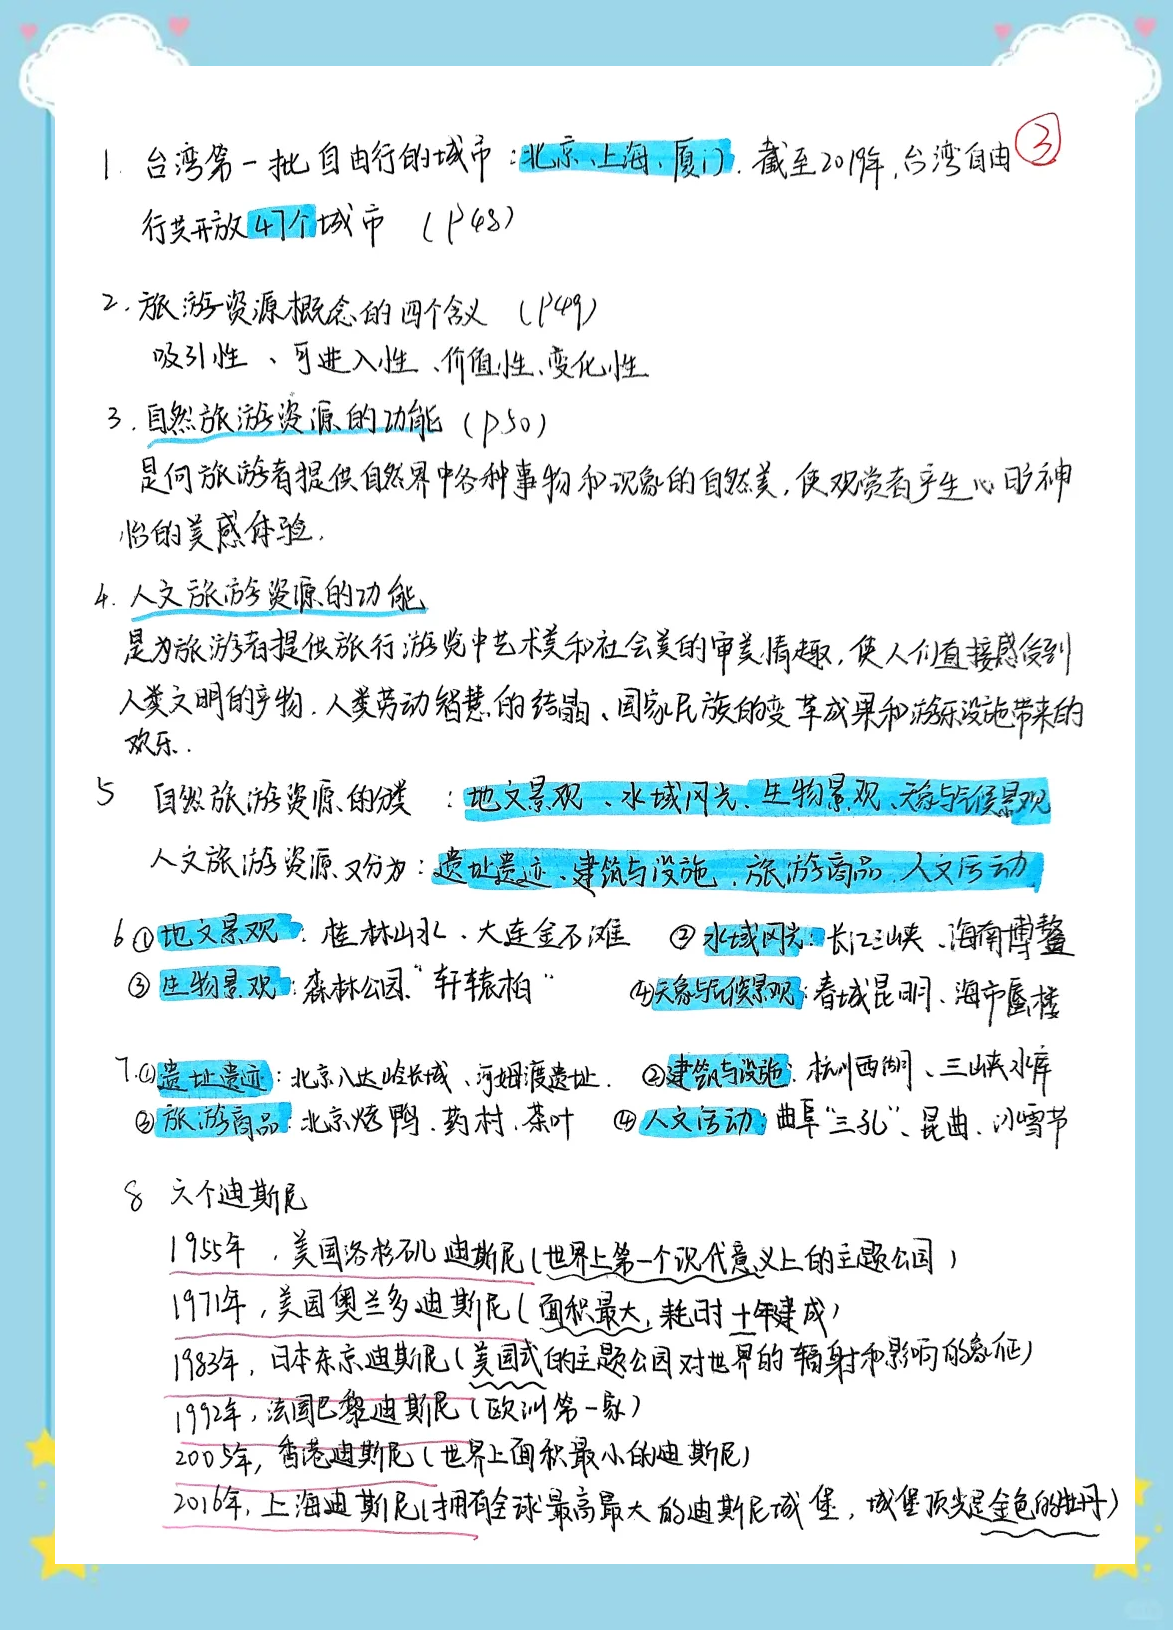 ③
1. 台湾第一批自由行的城市：北京、上海、厦门. 截至2019年,台湾自由
行共开放47个城市 (P48)
2. 旅游资源概念的四个含义 (P49)
吸引性、可进入性、价值性、变化性
3. 自然旅游资源的功能 (P50)
是向旅游者提供自然界中各种事物和现象的自然美,使观赏者产生心旷神
怡的美感体验.
4. 人文旅游资源的功能
是为旅游者提供旅行游览中艺术美和社会美的审美情趣,使人们直接感受到
人类文明的产物.人类劳动智慧的结晶、国家民族的变革成果和游乐设施带来的
欢乐.
5 自然旅游资源的分类 ：地文景观、水域风光、生物景观、天象与气候景观
人文旅游资源又分为：遗址遗迹、建筑与设施、旅游商品、人文活动
6 ①地文景观：桂林山水、大连金石滩 ②水域风光：长江三峡、海南博鳌
③生物景观：森林公园、"轩辕柏" ④天象与气候景观：春城昆明、海市蜃楼
7.①遗址遗迹：北京八达岭长城、河姆渡遗址. ②建筑与设施：杭州西湖、三峡水库
③旅游商品：北京烤鸭、药材、茶叶 ④人文活动：曲阜"三孔"、昆曲、冰雪节
8 六个迪斯尼
1955年，美国洛杉矶迪斯尼(世界上第一个现代意义上的主题公园)
1971年,美国奥兰多迪斯尼(面积最大,耗时十年建成)
1983年,日本东京迪斯尼(美国式的主题公园对世界的辐射和影响的象征)
1992年,法国巴黎迪斯尼(欧洲第一家)
2005年,香港迪斯尼(世界上面积最小的迪斯尼)
2016年,上海迪斯尼(拥有全球最高最大的迪斯尼城堡，城堡顶尖是金色的牡丹)